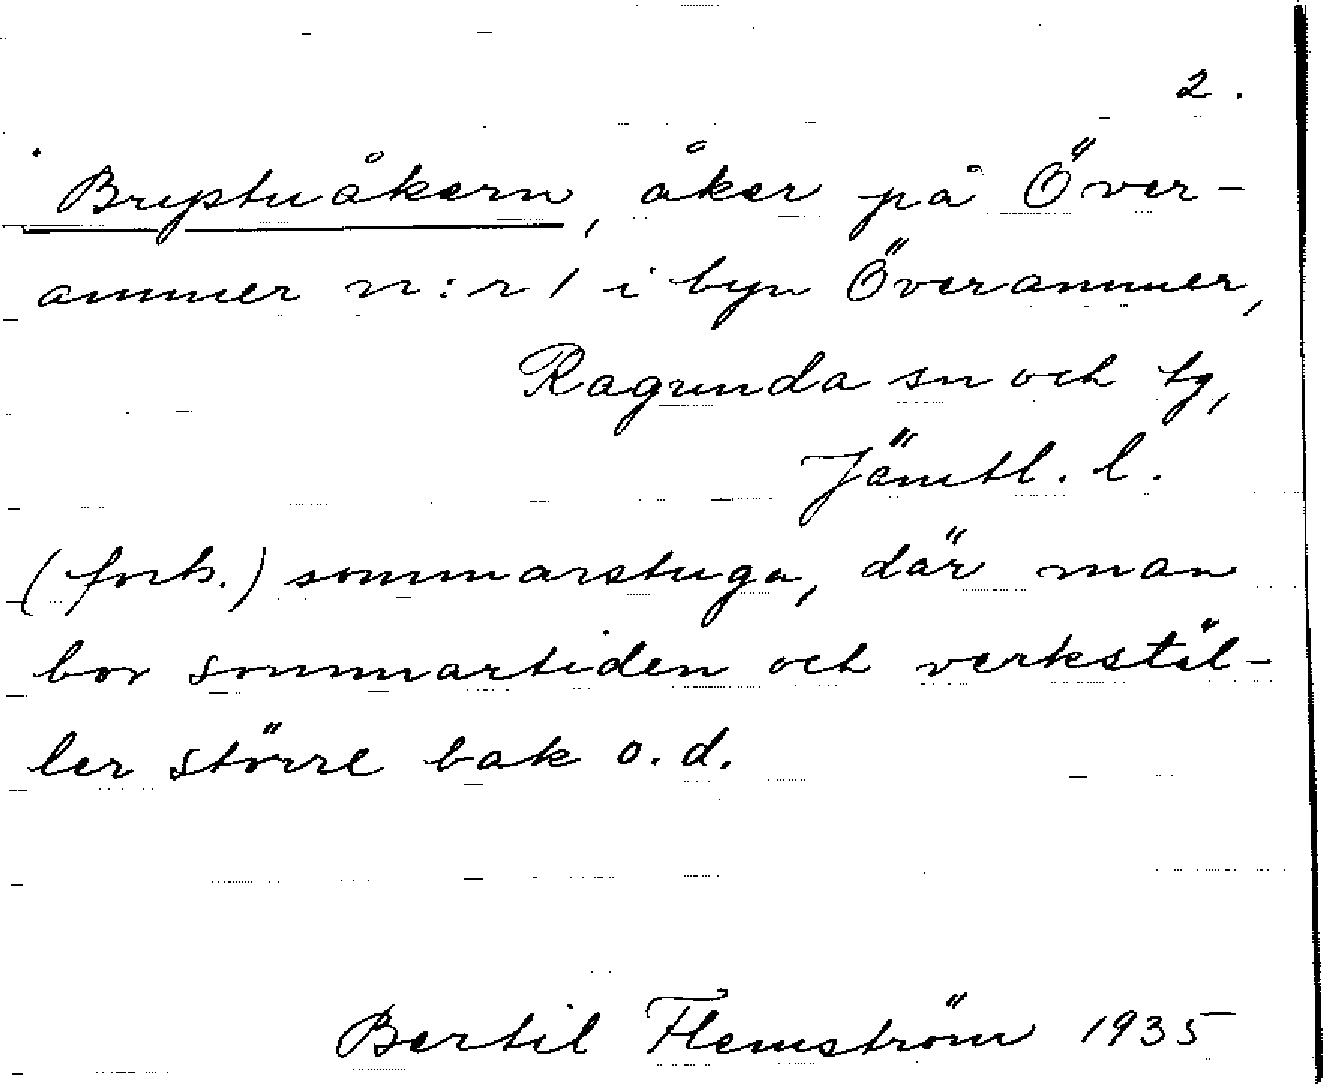 2.
Bryptuåkern, åker på Över-
ammer n:r 1 i byn Överammer,
Ragunda sn och tg,
Jämtl. l.
(forts.) sommarstuga, där man
bor sommartiden och verkstäl-
ler större bak o.d.
Bertil Flemström 1935